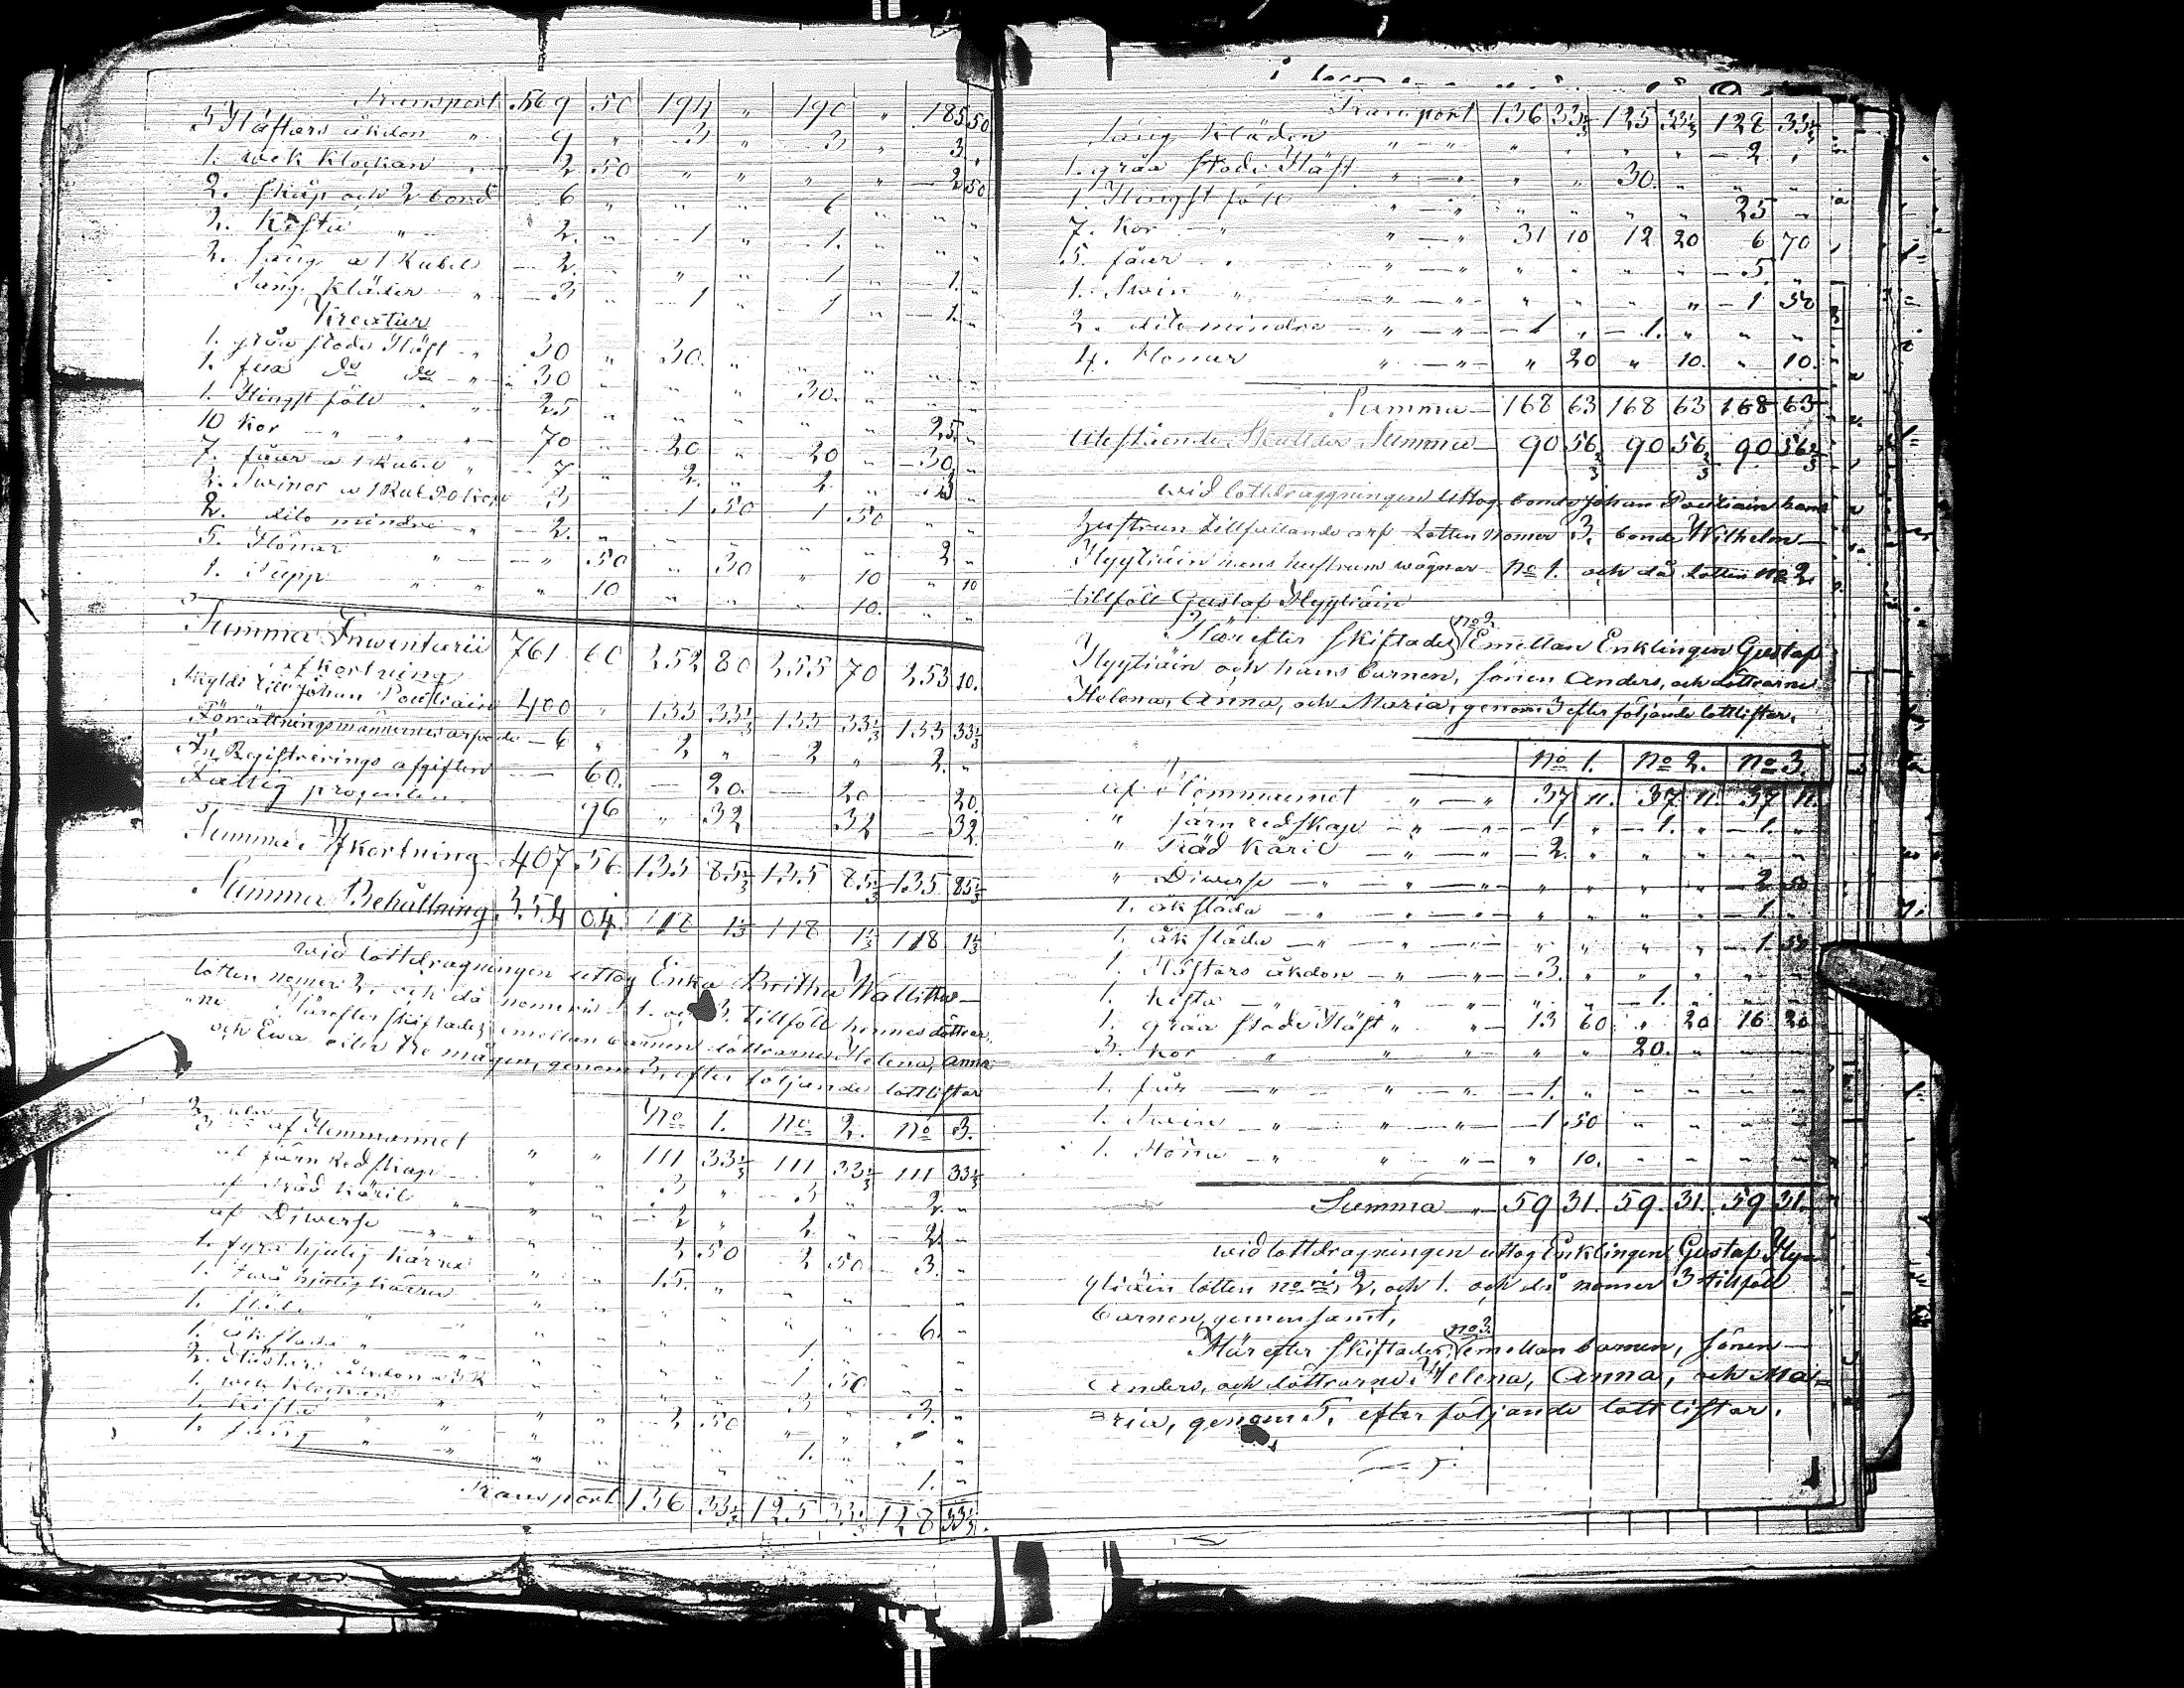 Transport 569 50 194 " 190 " 185 50
3 Häftars åkdon " 9 " 3 " 3 " 3 "
1. wek Klockan 2 50 " " " " 2 50
2. skåp och 2 bord 6 " " " 6 " " "
2. Kista " 2. " 1 " 1. " " "
2. säng a 1 Rubel 2. " " " 1 " 1. "
Säng Kläder " 3 " 1 " 1 " 1. "
Kreatur
1. gråa stodo Häst 30 " 30. " " " " "
1. do do 30 " " " 30. " " "
1. Hingst föll 25 " " " " " 25. "
10 Kor " " 70 " 20 " 20 " 30 "
7. fåar a 1 Rubel " 7 " 2. " 2. " 3 "
2. Swinor 3 1 50 1 50 " "
2. dito mindre " 2. " " " " " 2 "
5. Hönor " " 50 " 30 " 10 " 10
1. Tupp " " 10 " " " 10. " "
Summa Inwentarii 761 60 252 80 255 70 253 10.
afkortning
skyldi till Johan Poutiain 400 " 133 33⅓ 133 33⅓ 133 33⅓
Förrättningsmännernes arfvode 6 " 2 " 2 " 2. "
In Registrerings afgiften 60. 20. 20 20.
Fattig procenten 96 " 32 32 32.
Summa Afkortning 407 56 135 85⅓ 135 85⅓ 135 85⅓
Summa Behållning 354 04. 118 1⅓ 118 1⅓ 118 1⅓
wid lottdragningen uttog Enka Britha Wallitar
lotten nomer 2. och då nomerne 1. och 3. tillföll hennes döttrar.
Härefter skiftades emellan barnen döttrarne Helena, Anna
och Ewa eller tre mågen, genom 3, efter följande lottlistar
No 1. No 2. No 3.
af Hemmannet " " 111 33⅓ 111 33⅓ 111 33⅓
af järn Redskap " " 3 " 3 " 2. "
af Träd Käril " " 2 " 2 " 2 "
af Diwerse " " 2 50 2 50 3. "
1. fyra hjulig kärra " " 15. " " " " "
1. två hjulig kärra " " " " " " 6. "
1. släde " " " " 1. " " "
1. åk släda " " " " 1 50 " "
2. Hästars åkdon a 3 R " " " " 3 " 3. "
1. wek klockan " " 2 50 " " " "
1. Kista " " " " 1. " " "
1. säng " " " " " " 1. "
Transport 136 33⅓ 125 33⅓ 128 33⅓
Transport 136 33⅓ 125 33⅓ 128 33⅓
säng Kläder " " " " " 2 "
1. gråa stodo Häst " " 30. " " "
1. Hingst föll " " " " 25 "
7. Kor " 31 10 12 20 6 70
5. fåar " " " " " 5 "
1. Swin " " " " " 1 50
2. dito mindre " 1 " 1. " " "
4. Hönor " " 20 " 10. " 10.
Summa 168 63 168 63 168 63
Utestående Skulldar Summa 90 56⅔ 90 56⅔ 90 56⅔
wid lottdraggningen uttog bonde Johan Poutiain hans
hustrun tillfallande arf Lotten nomer 3. bonde Wilhelm
Hyytiäin hans hustruns wägnar No 1. och då lotten No 2.
tillföll Gustaf Hyytiäin
Härefter skiftades No 2. Emellan Enklingen Gustaf
Hyytiäin och hans barnen, sonen Anders, och döttrarne
Helena, Anna, och Maria, genom 3 efter följande lottlistar.
No 1. No 2. No 3.
af Hemmannet " " 37 11. 37 11. 37 11.
" järn redskap " " 1 " 1. " 1. "
" Träd Käril " 2. " " " " "
" Diwerse " " " " " 2 50
1. åk släda " " " " " 1. "
1. åk släde " " " " " 1. 50
1. Häftars åkdon " 3. " " " " "
1. Kista " " " 1. " " "
1. gråa stodo Häst " 13 60 " 20 16 20
3. Kor " " " 20. " " "
1. får " 1. " " " " "
1. Swin " 1 50 " " " "
1. Höna " " 10. " " " "
Summa 59 31. 59. 31. 59 31.
wid lottdragningen uttog Enklingen Gustaf Hy-
ytiäin lotten 2, och 1. och då nomer 3 tillföll
barnen gemensamt,
Härefter skiftades No 3. emellan barnen, sönen
Anders, och döttrarne Helena, Anna, och Ma-
ria, genom 5, efter följande lottlistar.